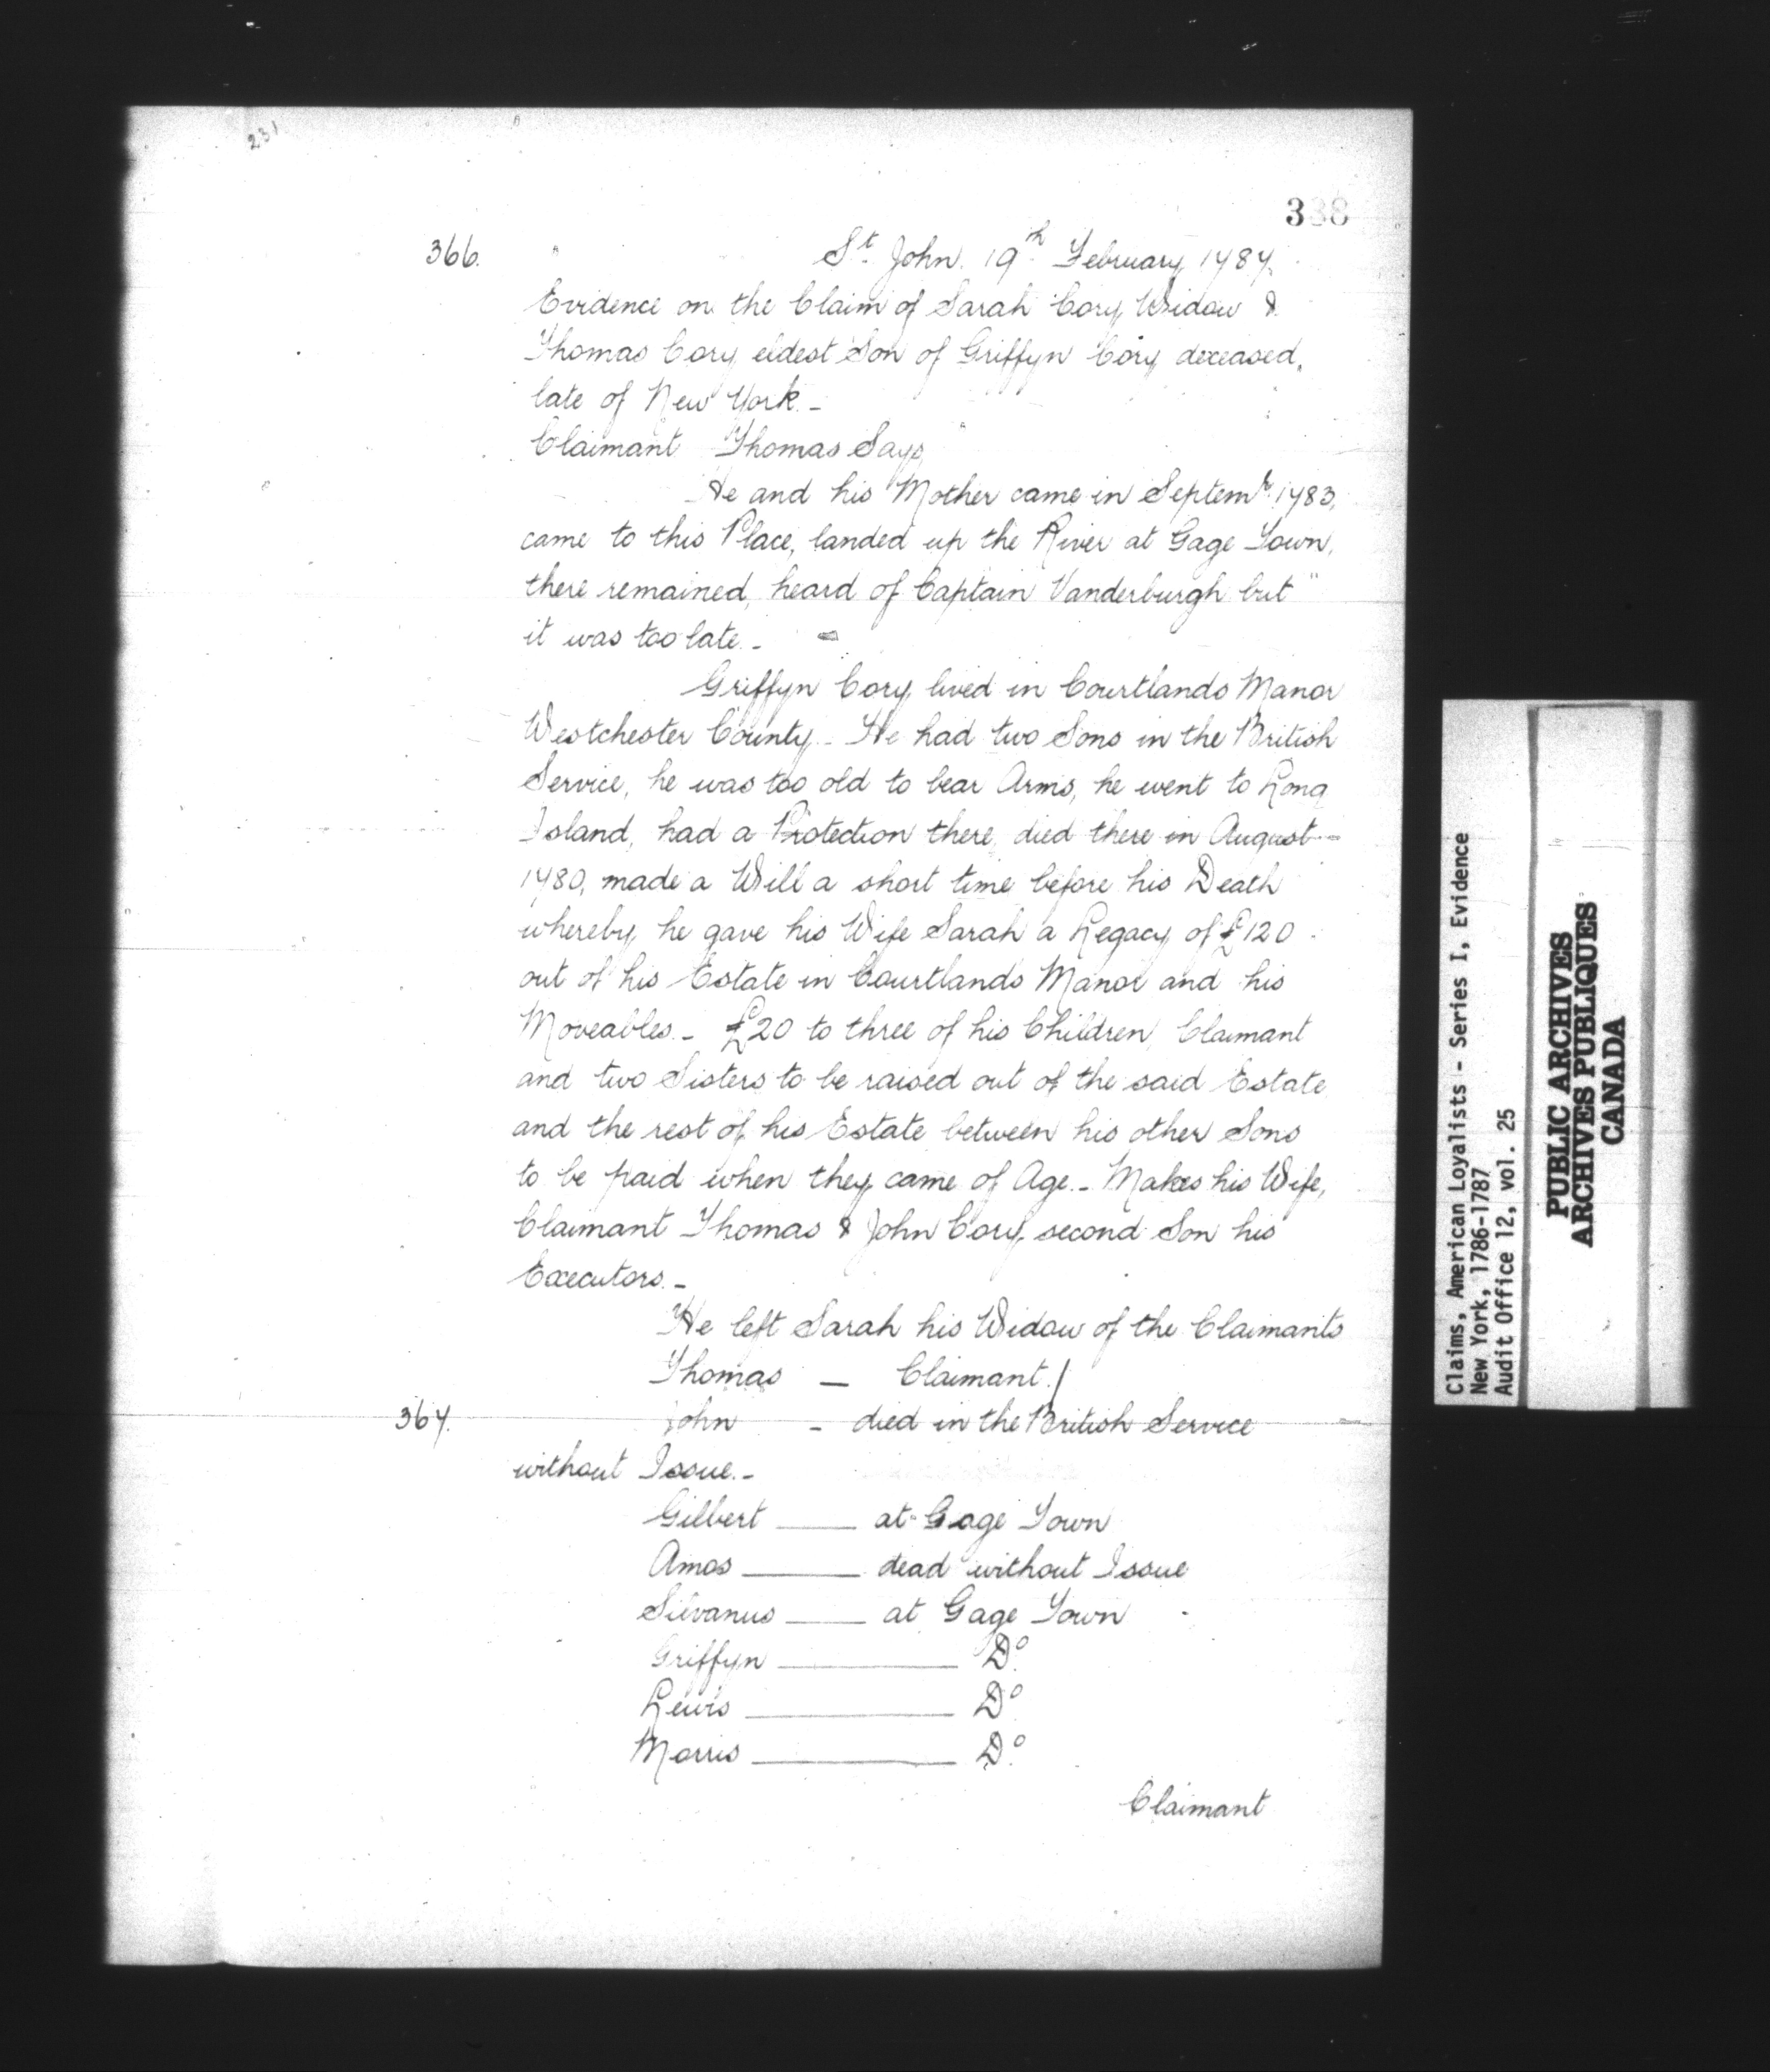 231
338
366. St. John. 19th February 1787.
Evidence on the Claim of Sarah Cory Widow &
Thomas Cory eldest Son of Griffyn Cory deceased,
late of New York. -
Claimant Thomas Says
He and his Mother came in Septemr. 1783,
came to this Place, landed up the River at Gage Town,
there remained, heard of Captain Vanderburgh but
it was too late. -
Griffyn Cory lived in Courtlands Manor
Westchester County. - He had two Sons in the British
Service, he was too old to bear Arms, he went to Long
Island, had a Protection there, died there in August -
1780, made a Will a short time before his Death
whereby he gave his Wife Sarah a Legacy of £120
out of his Estate in Courtlands Manor and his
Moveables. - £20 to three of his Children, Claimant
and two Sisters to be raised out of the said Estate
and the rest of his Estate between his other Sons
to be paid when they came of Age. - Makes his Wife,
Claimant Thomas & John Cory second Son his
Executors. -
He left Sarah his Widow of the Claimants
Thomas — Claimant. /
367. John - died in the British Service
without Issue. -
Gilbert — at Gage Town
Amos — dead without Issue
Silvanus — at Gage Town
Griffyn — Do.
Lewis — Do.
Morris — Do.
Claimant
Claims, American Loyalists - Series I, Evidence
New York, 1786-1787
Audit Office 12, vol. 25
PUBLIC ARCHIVES
ARCHIVES PUBLIQUES
CANADA